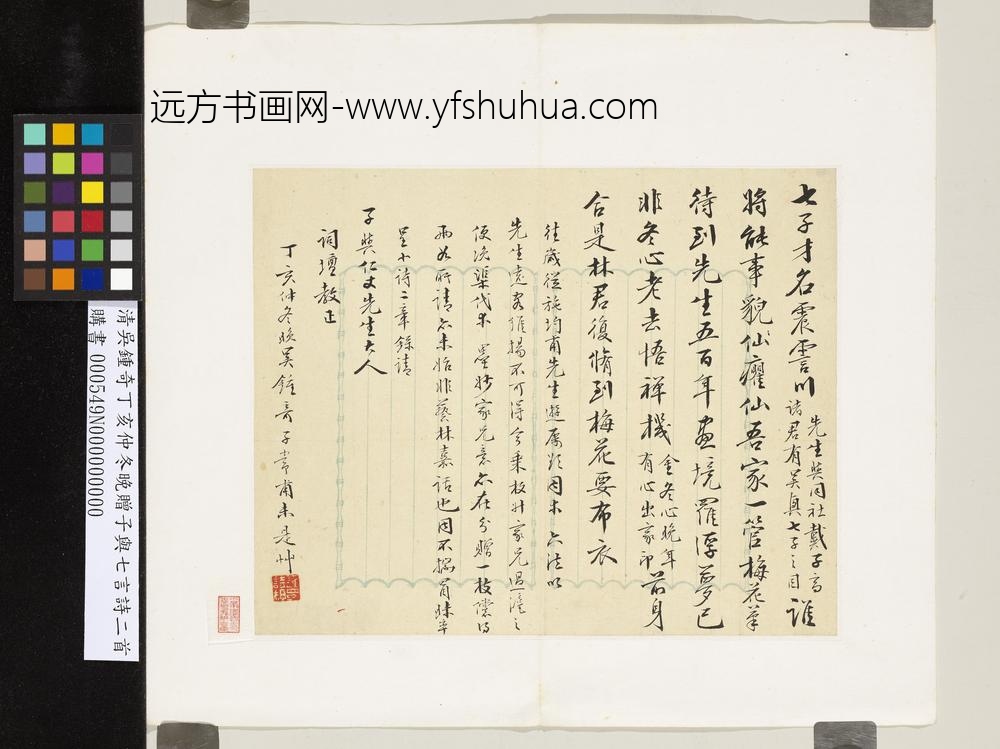 远方书画网-www.yfshuhua.com
七子才名震雪川先生與同社戴子高諸君有吳興七子之目誰
將能事貌仙癯仙吾家一管梅花筆
待到先生五百年畫境羅浮夢已
非冬心老去悟禪機金冬心晚年有心出家印前身
合是林君復脩到梅花要布衣
往歲從施均甫先生遊屬
先生遠客維揚不可得今乘
便浼渠代求墨妙家兄意亦在分贈一枝儻得
兩如所請亦未始非藝林嘉話也因不揣冒昧率
呈小詩二章錄請
子與仁丈先生大人
詞壇教正
丁亥仲冬晚吳鍾奇子常甫未是艸
清吳鍾奇丁亥仲冬晚贈子與七言詩二首
購書 000549N000000000